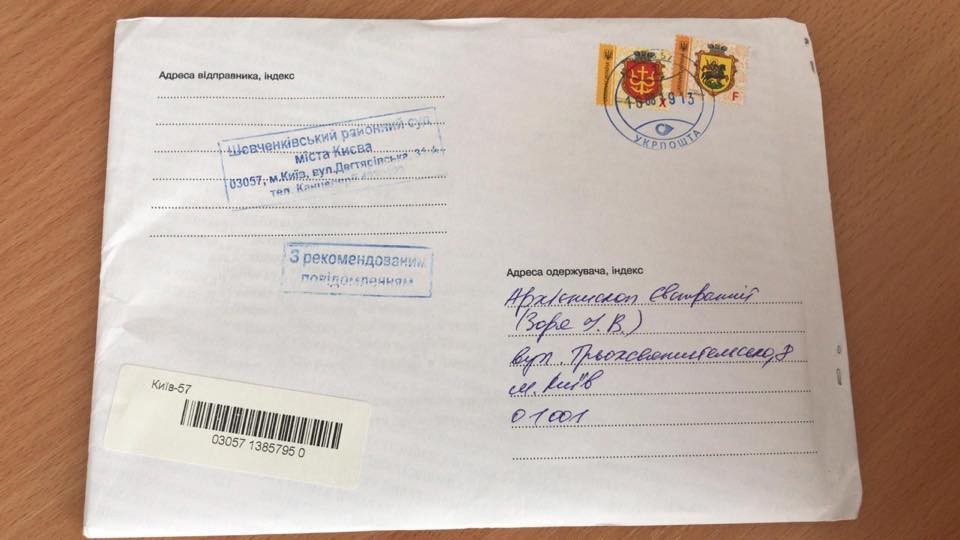 Адреса відправника, індекс
Шевченківський районний суд
міста Києва
03057, м.Київ, вул.Дегтярівська, 31-А
тел. Канцелярії
З рекомендованим
повідомленням
Київ-57
03057 1385795 0
F
X
9 13
УКРПОШТА
Адреса одержувача, індекс
Архієпископ Євстратій
(Зоря І.В)
вул. Трьохсвятительська, 8
м. Київ
01001